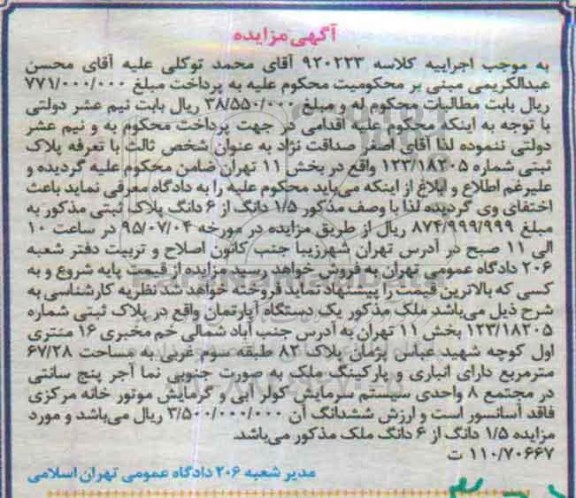 آگهی مزایده
به موجب اجراییه کلاسه ۹۲۰۲۲۳ آقای محمد توکلی علیه آقای محسن
عبدالکریمی مبنی بر محکومیت محکوم علیه به پرداخت مبلغ ۷۷۱/۰۰۰/۰۰۰
ریال بابت مطالبات محکوم له و مبلغ ۳۸/۵۵۰/۰۰۰ ریال بابت نیم عشر دولتی
با توجه به اینکه محکوم علیه اقدامی در جهت پرداخت محکوم به و نیم عشر
دولتی ننموده لذا آقای اصغر صداقت نژاد به عنوان شخص ثالث با تعرفه پلاک
ثبتی شماره ۱۲۳/۱۸۲۰۵ واقع در بخش ۱۱ تهران ضامن محکوم علیه گردیده و
علیرغم اطلاع و ابلاغ از اینکه می‌باید محکوم علیه را به دادگاه معرفی نماید باعث
اختفای وی گردیده لذا با وصف مذکور ۱/۵ دانگ از ۶ دانگ پلاک ثبتی مذکور به
مبلغ ۸۷۴/۹۹۹/۹۹۹ ریال از طریق مزایده در مورخه ۹۵/۰۷/۰۴ در ساعت ۱۰
الی ۱۱ صبح در آدرس تهران شهرزیبا جنب کانون اصلاح و تربیت دفتر شعبه
۲۰۶ دادگاه عمومی تهران به فروش خواهد رسید مزایده از قیمت پایه شروع و به
کسی که بالاترین قیمت را پیشنهاد نماید فروخته خواهد شد نظریه کارشناسی به
شرح ذیل می‌باشد ملک مذکور یک دستگاه آپارتمان واقع در پلاک ثبتی شماره
۱۲۳/۱۸۲۰۵ بخش ۱۱ تهران به آدرس جنب آباد شمالی خم مخبری ۱۶ متری
اول کوچه شهید عباس پژمان پلاک ۸۲ طبقه سوم غربی به مساحت ۶۷/۲۸
مترمربع دارای انباری و پارکینگ ملک به صورت جنوبی نما آجر پنج سانتی
در مجتمع ۸ واحدی سیستم سرمایش کولر آبی و گرمایش موتور خانه مرکزی
فاقد آسانسور است و ارزش ششدانگ آن ۳/۵۰۰/۰۰۰/۰۰۰ ریال می‌باشد و مورد
مزایده ۱/۵ دانگ از ۶ دانگ ملک مذکور می‌باشد.
۱۱۰/۷۰۶۶۷ ت
مدیر شعبه ۲۰۶ دادگاه عمومی تهران اسلامی